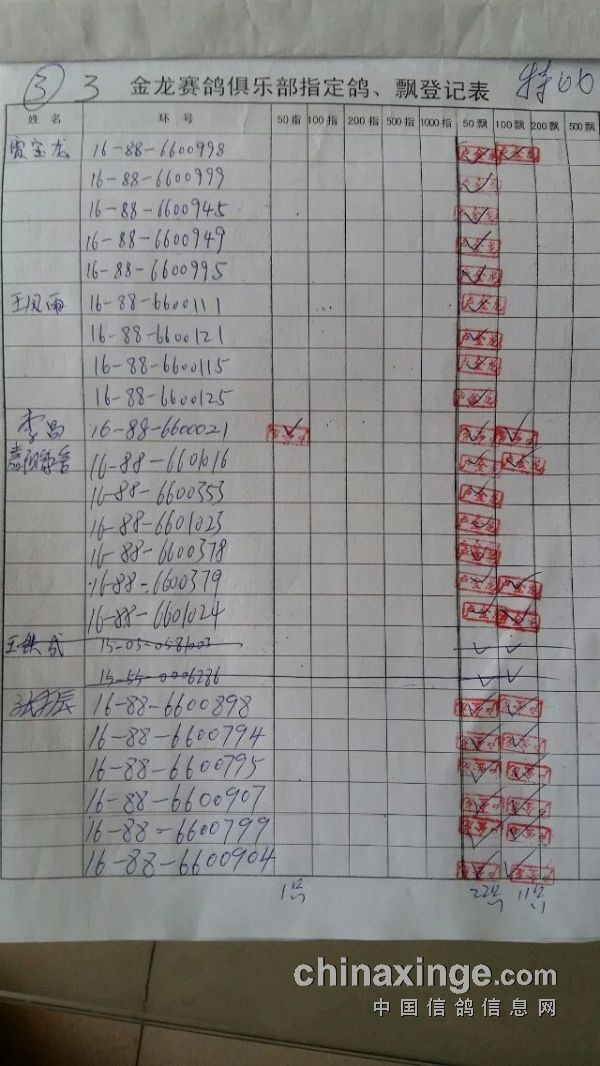 ③ 3 金龙赛鸽俱乐部指定鸽、飘登记表
姓名 环号 50指 100指 200指 500指 1000指 50飘 100飘 200飘 500飘
贾宝龙 16-88-6600998
16-88-6600999
16-88-6600945
16-88-6600949
16-88-6600995
王风雨 16-88-6600111
16-88-6600121
16-88-6600115
16-88-6600125
李昌 16-88-6600021
16-88-6601016
16-88-6600353
16-88-6601023
16-88-6600378
16-88-6600379
16-88-6601024
王铁成 15-05-0581003
15-55-0006286
16-88-6600898
16-88-6600794
16-88-6600795
16-88-6600907
16-88-6600799
16-88-6600904
chinaxinge.com
中国信鸽信息网